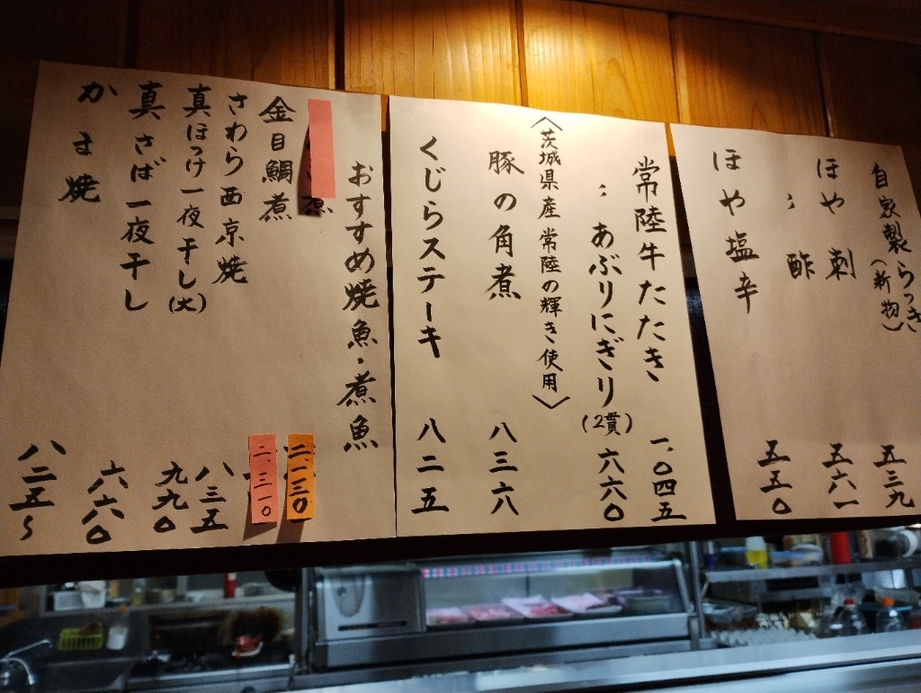 自家製らっき
(新物) 五三九
ほや刺 五六一
〃 酢
ほや塩辛 五五〇
常陸牛たたき 一、〇四五
〃 あぶりにぎり(2貫) 六六〇
〈茨城県産 常陸の輝き使用〉
豚の角煮 八三六
くじらステーキ 八二五
おすすめ焼魚・煮魚
煮 二、一三〇
金目鯛煮 二、三一〇
さわら西京焼 八三五
真ほっけ一夜干し(大) 九九〇
真さば一夜干し 六六〇
かま焼 八二五〜